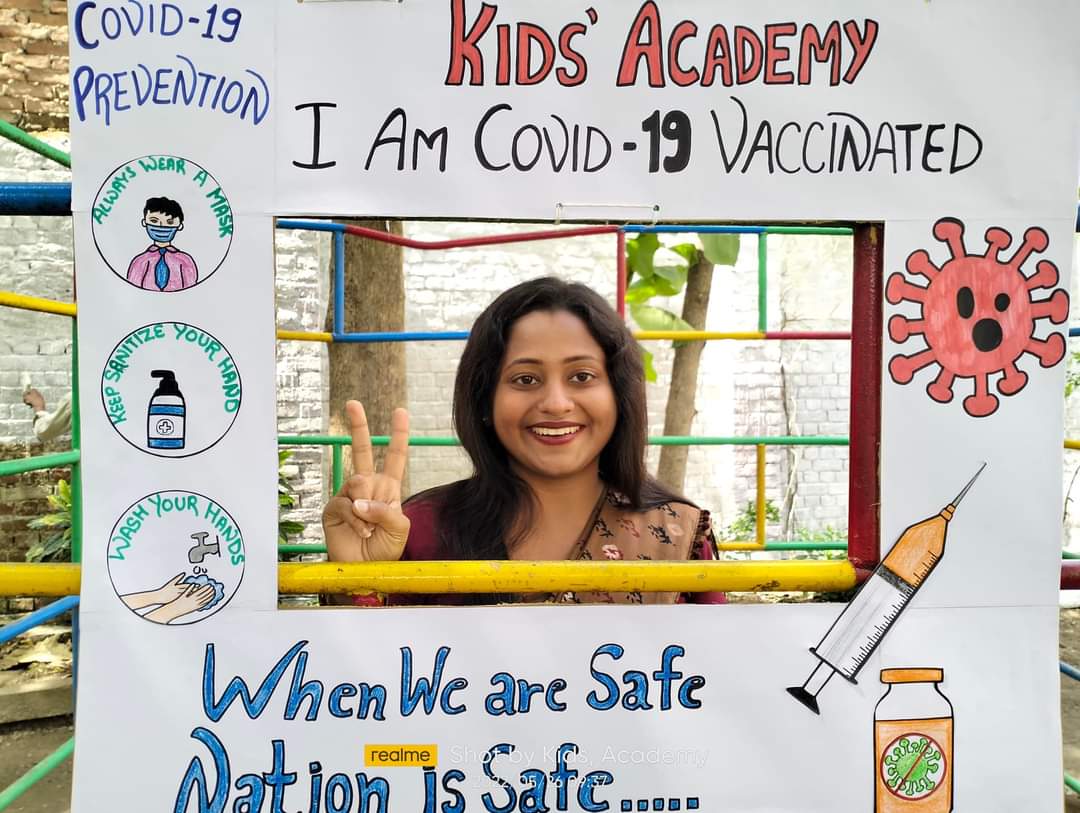 COVID-19
PREVENTION
KIDS' ACADEMY
I AM COVID-19 VACCINATED
ALWAYS WEAR A MASK
KEEP SANITIZE YOUR HAND
WASH YOUR HANDS
When We are Safe
Nation is Safe.....
realme Shot by Kids, Academy